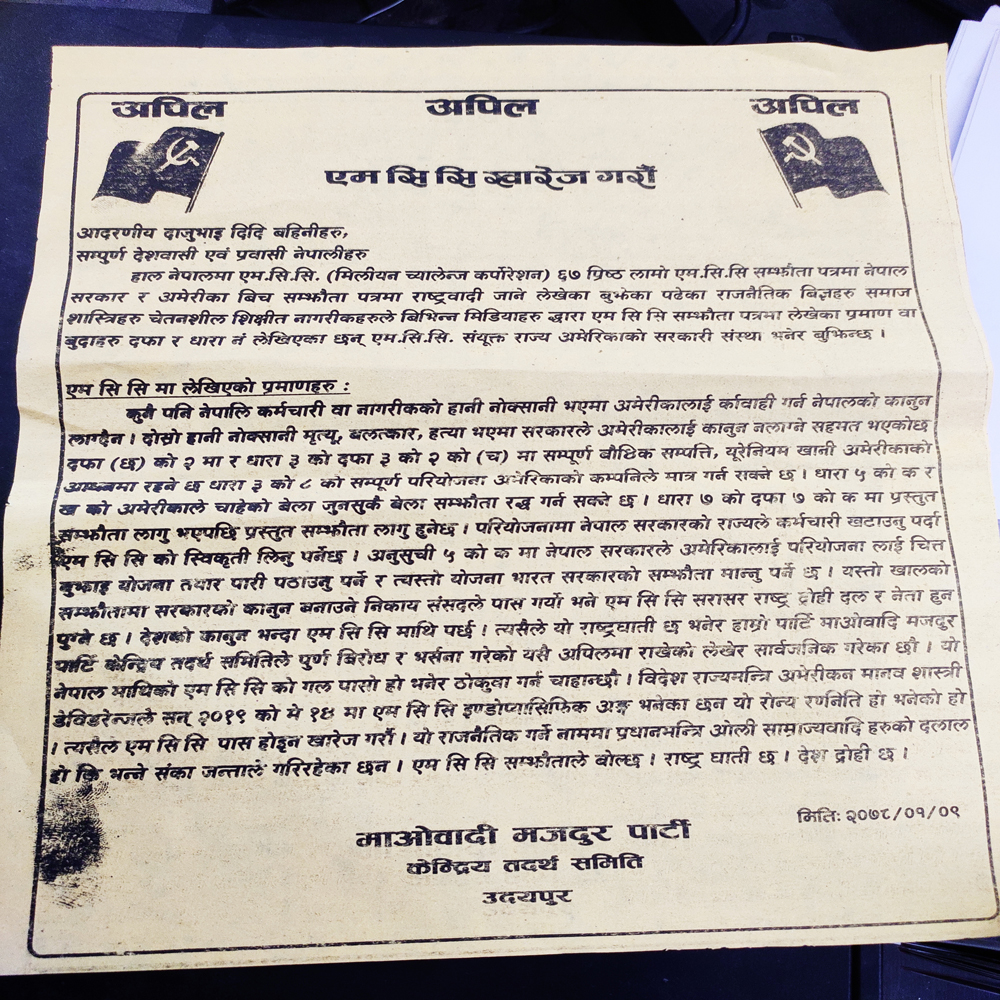 अपिल अपिल अपिल
एम सि सि खारेज गरौं
आदरणीय दाजुभाइ दिदि बहिनीहरु,
सम्पुर्ण देशवासी एवं प्रवासी नेपालीहरु
हाल नेपालमा एम.सि.सि. (मिलीयन च्यालेन्ज कर्पोरेशन) ६७ प्रिष्ठ लामो एम.सि.सि सम्झौता पत्रमा नेपाल
सरकार र अमेरीका बिच सम्झौता पत्रमा राष्ट्रवादी जाने लेखेका बुझेका पढेका राजनैतिक बिज्ञहरु समाज
शास्त्रिहरु चेतनशील शिक्षीत नागरीकहरुले बिभिन्न मिडियाहरु द्धारा एम सि सि सम्झौता पत्रमा लेखेका प्रमाण वा
बुदाहरु दफा र धारा नं लेखिएका छन् एम.सि.सि. संयूक्त राज्य अमेरिकाको सरकारी संस्था भनेर बुझिन्छ ।
एम सि सि मा लेखिएको प्रमाणहरु :
कुनै पनि नेपालि कर्मचारी वा नागरीकको हानी नोक्सानी भएमा अमेरीकालाई र्कावाही गर्न नेपालको कानुन
लाग्दैन । दोस्रो हानी नोक्सानी मृत्यू, बलत्कार, हत्या भएमा सरकारले अमेरीकालाई कानुन नलाग्ने सहमत भएकोछ
दफा (छ) को २ मा र धारा ३ को दफा ३ को २ को (च) मा सम्पूर्ण बौध्दिक सम्पत्ति, यूरेनियम खानी अमेरीकाको
रहने छ धारा ३ को ८ को सम्पूर्ण परियोजना अमेरिकाको कम्पनिले मात्र गर्न सक्ने छ । धारा ५ को क र
ख को अमेरीकाले चाहेको बेला जुनसुकै बेला सम्झौता रद्ध गर्न सक्ने छ । धारा ७ को दफा ७ को क मा प्रस्तुत
सम्झौता लागु भएपछि प्रस्तुत सम्झौता लागु हुनेछ । परियोजनामा नेपाल सरकारको राज्यले कर्मचारी खटाउनु पर्दा
एम सि सि को स्विकृती लिनु पर्नेछ । अनुसुची ५ को क मा नेपाल सरकारले अमेरिकालाई परियोजना लाई चित्त
बुझाइ योजना तयार पारी पठाउनु पर्ने र त्यस्तो योजना भारत सरकारको सम्झौता मान्नु पर्ने छ । यस्तो खालको
सम्झौतामा सरकारको कानुन बनाउने निकाय संसदले पास गर्यो भने एम सि सि सरासर राष्ट्र द्रोही दल र नेता हुन
पुग्ने छ । देशको कानुन भन्दा एम सि सि माथि पर्छ । त्यसैले यो राष्ट्रघाती छ भनेर हाम्रो पार्टि माओवादि मजदुर
पार्टि केन्द्रिय तदर्थ समितिले पुर्ण बिरोध र भर्सना गरेको यसै अपिलमा राखेको लेखेर सार्वजनिक गरेका छौ । यो
नेपाल माथिको एम सि सि को गल पासो हो भनेर ठोकुवा गर्न चाहान्छौ । विदेश राज्यमन्त्रि अमेरीकन मानव शास्त्री
डेविडरेन्जले सन् २०१९ को मे १४ मा एम सि सि इण्डोप्यासिफिक अङ्ग भनेका छन यो सैन्य रणनिति हो भनेको हो
। त्यसैले एम सि सि पास होइन खारेज गरौं । यो राजनैतिक गर्ने नाममा प्रधानमन्त्रि ओली साम्राज्यवादि हरुको दलाल
हो कि भन्ने संका जन्ताले गरिरहेका छन । एम सि सि सम्झौताले बोल्छ । राष्ट्र घाती छ । देश द्रोही छ ।
मितिः २०७८/०१/०९
माओवादी मजदुर पार्टी
केन्द्रिय तदर्थ समिति
उदयपुर